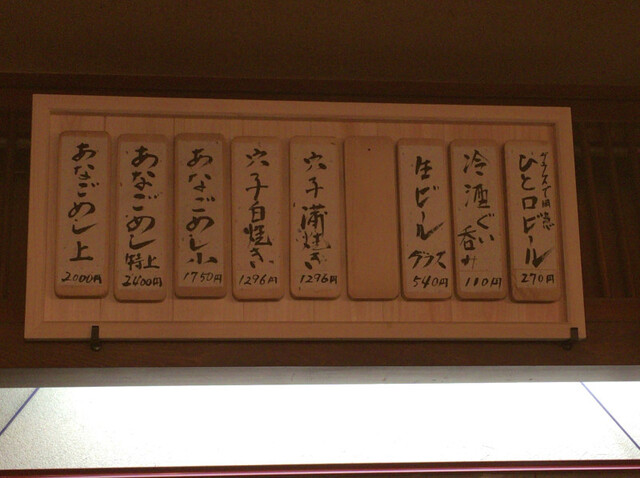 ひと口ビール
270円
冷酒ぐい
呑み
110円
生ビール
グラス
540円
穴子蒲焼き
1296円
穴子白焼き
1296円
あなごめし小
1750円
あなごめし
特上
2400円
あなごめし上
2000円